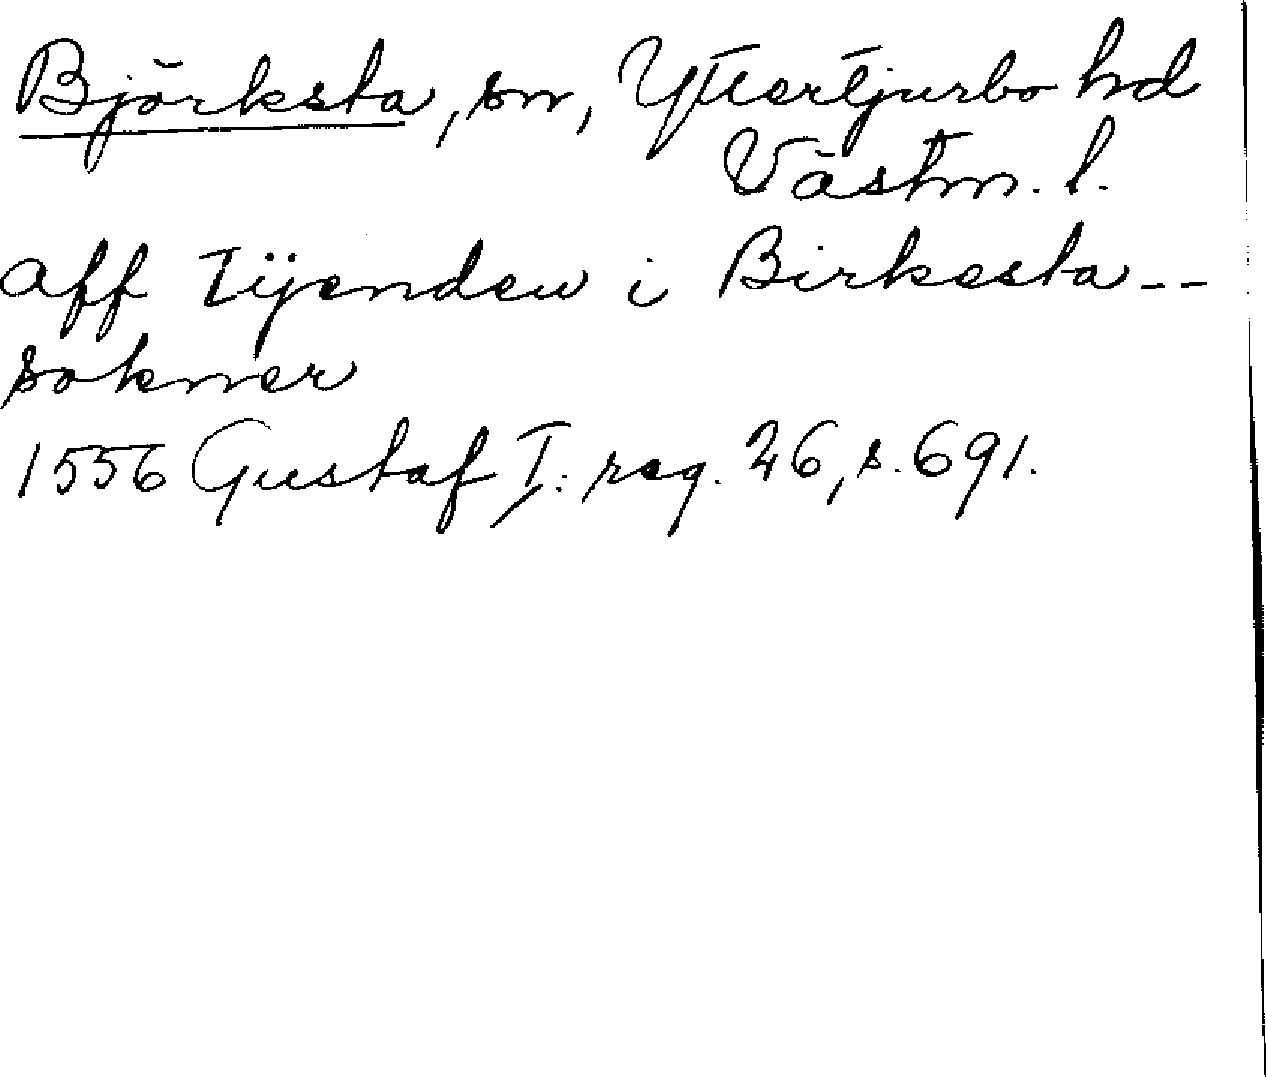 Björksta, sn, Yttertjurbo hd
Västm. l.
aff Tijenden i Birkesta--
sokner
1556 Gustaf I: reg. 26, s. 691.